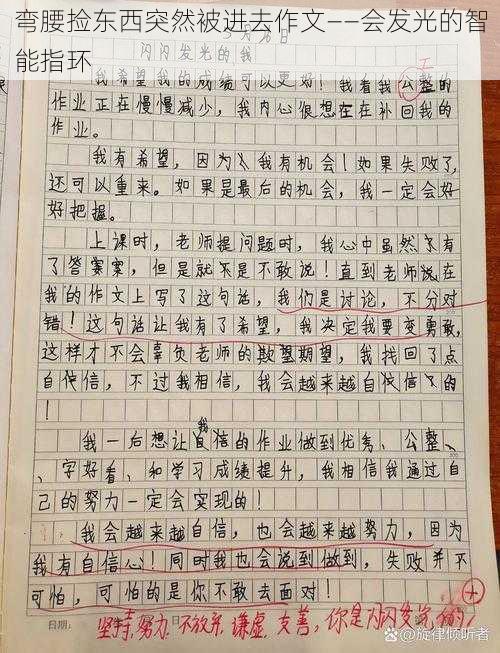 弯腰捡东西突然被进去作文——会发光的智
能指环
闪闪发光的我
我希望我的成绩可以更好！我看我公整的
作业正在慢慢减少，我内心很想在在补回我的
作业。
我有希望，因为我有机会！如果失败了，
还可以重来。如果是最后的机会，我一定会好
好把握。
上课时，老师提问题时，我心中虽然了有
了答案案，但是就不是不敢说！直到老师说在
我的作文上写了这句话，我们是讨论，不分对
错！这句话让我有了希望，我决定我要变勇敢，
这样才不会辜负老师的欺望期望，我找回了点
自信信，不过我相信，我会越来越自信信了的
！
我
我一后想让自信的作业做到优秀、公整、
、字好看、和学习成绩提升，我相信我通过自
己的努力一定会实现的！
我会越来越自信，也会越来越努力，因为
我有自信心！同时我也会说到做到，失败并不
可怕，可怕的是你不敢去面对！
日期：
坚持，努力，不放弃，谦虚，友善，你是闪闪发光的！
@旋律倾听者